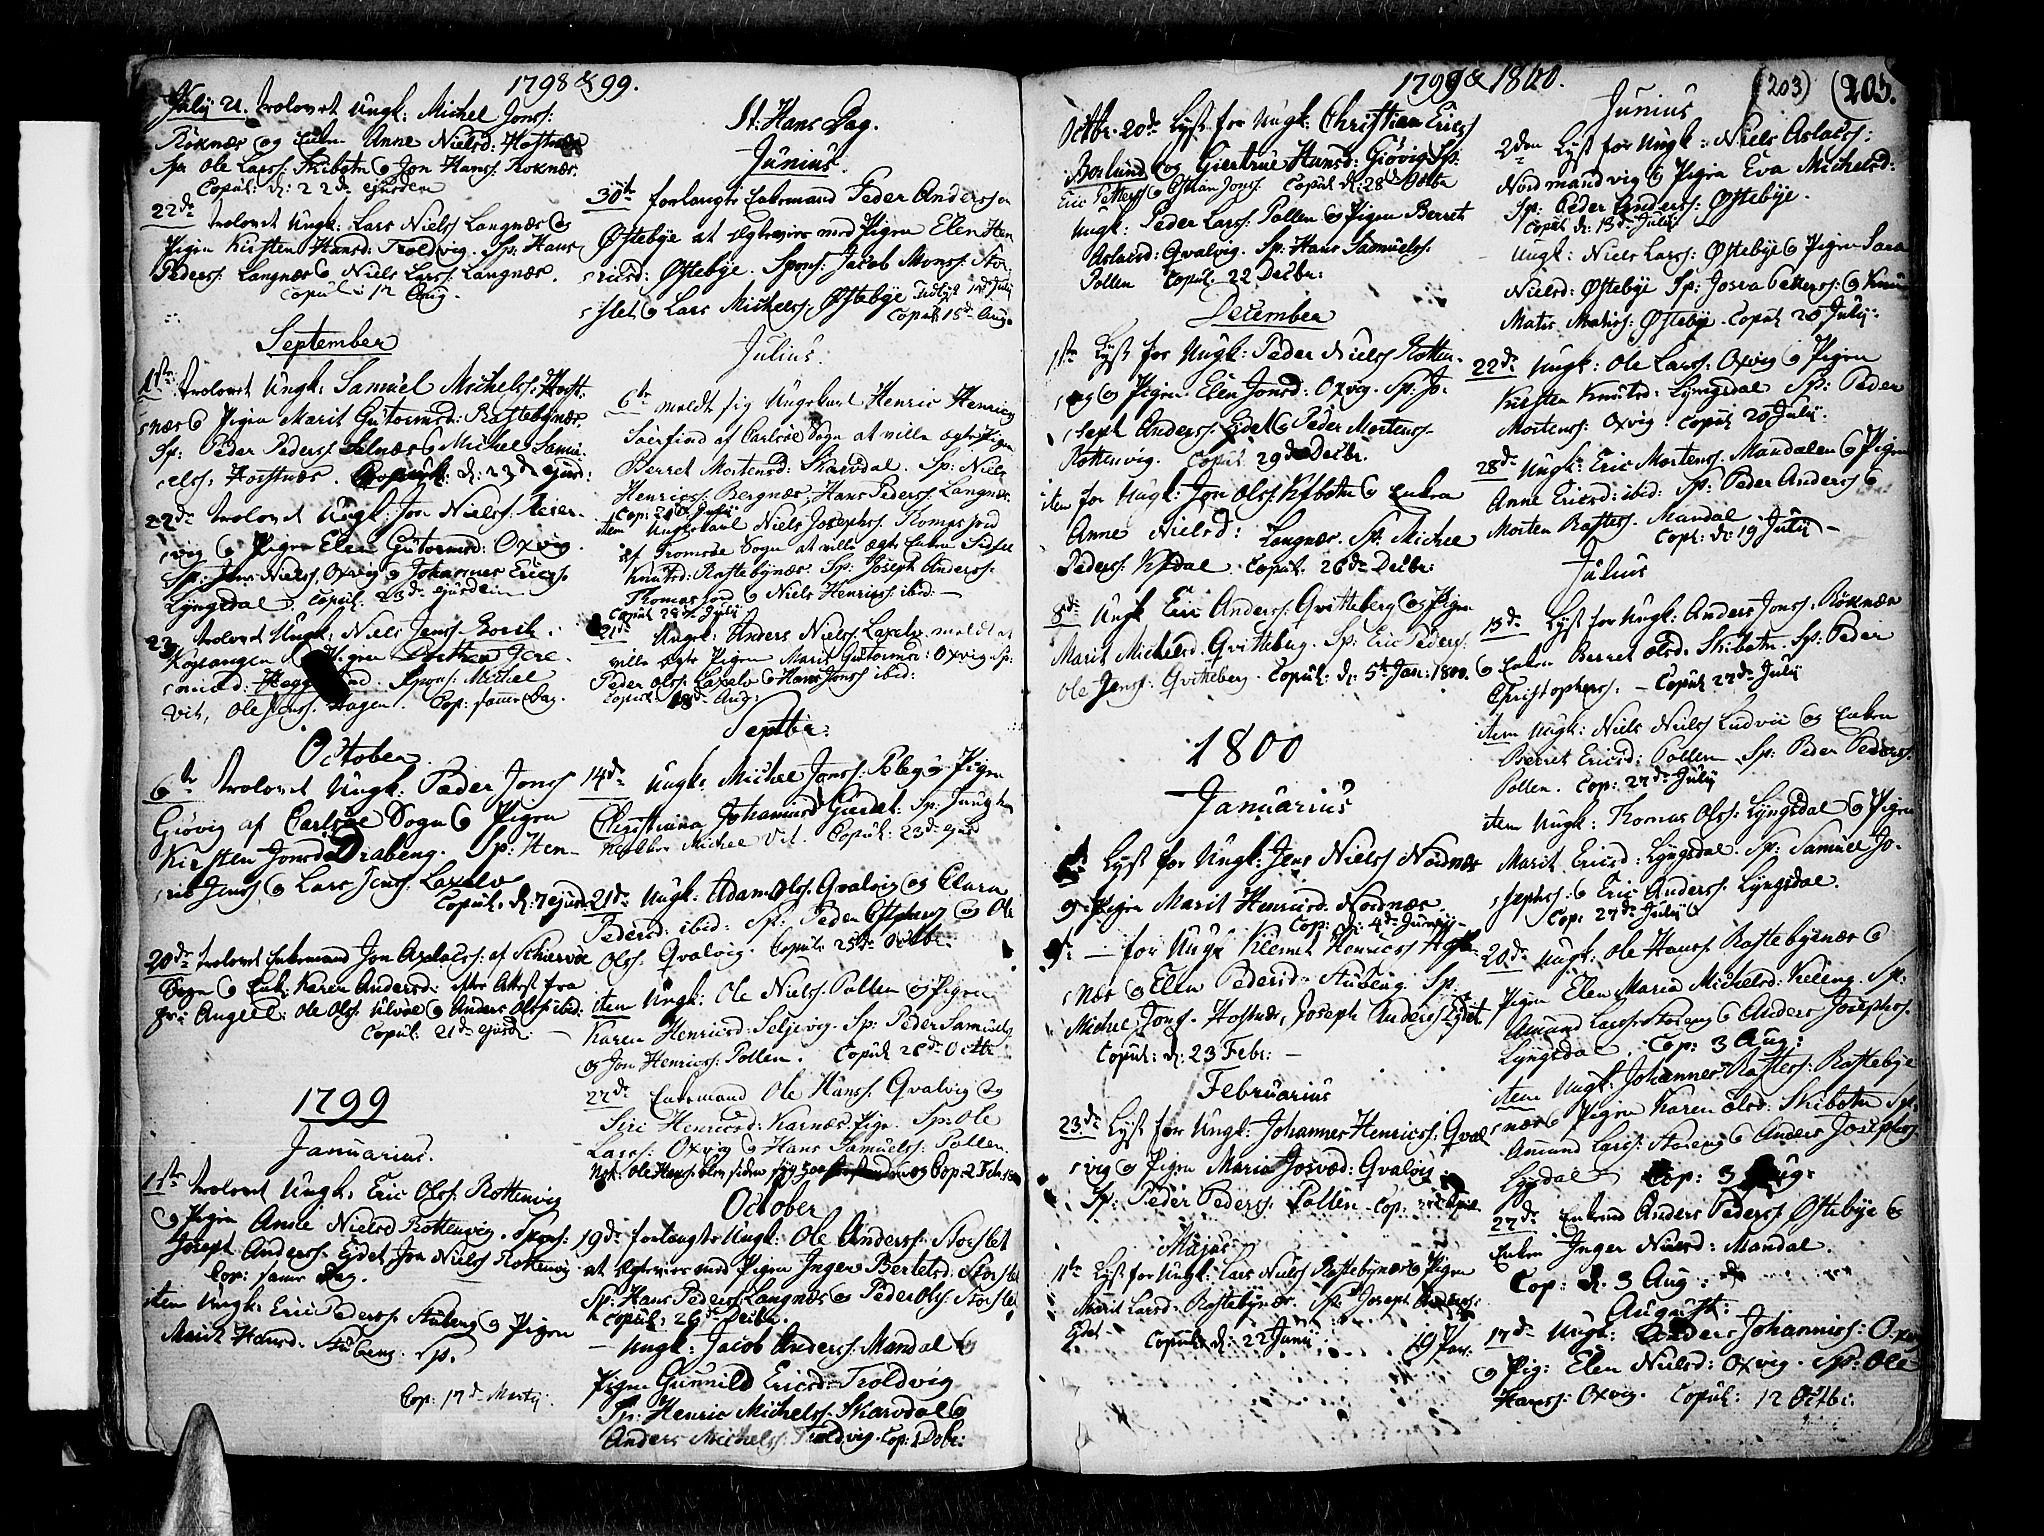 1798 & 99.
July 21. trolovet Ungk: Michel Jonss:
Roknæs og Enken Anne Nielsd: Hofnæs
Sp: Ole Larss. Skibotn & Jon Hanss. Roknæs.
Copul: d: 22de ejusdem
22de trolovet Ungk: Lars Nielss Langnæs &
Pigen Kirsten Hansd: Troldvig. Sp: Hans
Pederss: Langnæs & Niels Larss: Langnæs.
Copul: 12 Aug.
September
trolovet Ungk: Samuel Michelss. Hofs-
næs & Pigen Marit Gutormsd: Rastebynæs.
Sp: Peder Pederss & Michel Samu-
elss. d: 23de ejusd:
22de trolovet Ungk: Jon Nielss.
vig & Pigen Elen Gutormsd: Oxvig.
Sp: Jens Nielss. Oxvig & Johannes Ericss.
Lyngsdal. Copul: 23de ejusdem
23. trolovet Ungk: Niels Jenss.
Koglangen
Spons: Michel
Vit, Ole Jenss. Hagen. Cop: samme Dag.
October.
6te trolovet Ungk: Peder Jonss
Giøvig af Carlsøe Sogn & Pigen
Kirsten Jonsd. Drabeng. Sp: Hen-
ric Jenss & Lars Jenss. Laxelv
Copul: d: 7 ejusd:
20de trolovet Enkemand Jon Aslacss: af Schiervøe
Sogn & Enk: Karen Andersd: efter Attest fra
Angell: Ole Olss. Ulvøe & Anders Olss ibid:
Copul: 21de ejusd:
1799
Januarius.
1ste trolovet Ungk: Eric Olss. Rottenvig
& Pigen Anne Nielsd Rottenvig. Spons:
Joseph Anderss. Eidet, Jon Nielss Rottenvig
Cop: samme Dag.
item Ungk: Eric Pederss. Stubeng & Pigen
Marit Hansd: Stubeng. Sp.
Cop. 17de Martij.
St. Hans Dag.
Junius.
30te forlangte Enkemand Peder Anderssen
Østebye at ægtevies med Pigen Elen Hen-
ricsd: Østebye. Spons: Jacob Monss: Stor-
slet & Lars Michelss, Østebye
Copul: 15de Aug.
Julius.
6te meldt sig Ungekarl Henric Henricss
af Carlsøe Sogn at ville ægte Pigen
Berret Mortensd: Skarvdal. Sp: Niels
Henricss: Bergnæs, Hans Pederss: Langnæs.
Cop: 21de Julij
item Ungekarl Niels Josephss. Thomasjord
af Tromsøe Sogn at ville ægte Enken Sidsel
Knutsd: Rastebynæs. Sp: Joseph Anderss:
Thomasjord & Niels Henricss ibid:
Copul 28de Julij
21de Ungk: Anders Nielss. Laxelv meldt at
ville ægte Pigen Marit Gutormsd: Oxvig. Sp:
Peder Olss. Laxelv & Hans Jonss ibid:
Copul: 18de Aug:
Septbr.
14de Ungk: Michel Jonss. & Pigen
Christiana Johannesd Giedet: Sp:
Michel Vit. Copul: 23de ejusd
21de Ungk: Adam Olss. Qvalvig og Clara
Pedersd: ibid: Sp: Peder & Ole
Olss. Qvalvig. Copul: 25de Octbr.
item Ungk: Ole Nielss. Pollen & Pigen
Karen Henricsd: Seljevig. Sp: Peder Samuelss
& Jon Henricss: Pollen. Copul 26de Octbr
22de Enkemand Ole Hanss. Qvalvig &
Siri Henricsd: Karnæs Pige. Sp: Ole
Larss. Oxvig & Hans Samuelss. Pollen
Not: Ole Hans: blev siden syg Cop: 2 Febr:
October
19de forlangte Ungk: Ole Anderss. Storslet
at ægtevies med Pigen Inger Bertelsd: Storslet
Sp: Hans Pederss. Langnæs & Peder Olss. Storslet
Copul: 26de Decbr.
Ungk: Jacob Anderss. Mandal &
Pigen Gunnild Ericsd: Troldvig
Sp: Henric Michelss. Skarvdal &
Anders Michelss. Troldvig. Cop: 1 Dcbr:
1799 & 1800.
Octbr. 20de Lyst for Ungk: Christian Ericss
Borlund og Giertrue Hansd: Giøvig. Sp:
Eric Petterss & Jonss. Copul d: 28de Octbr
Ungk: Peder Larss: Pollen & Pigen Berret
Aslacsd: Qvalvig. Sp: Hans Samuelss.
Pollen Copul. 22 Decbr:
December
1ste Lyst for Ungk: Peder Nielss Rotten-
vig & Pigen Elen Jonsd: Oxvig. Sp: Jo-
seph Anderss. Eidet & Peder Mortens.
Rottenvig. Copul: 29de Decbr.
item for Ungk: Jon Olss. Kifbotn & Enken
Anne Nielsd: Langnæs. Sp: Michel
Pederss. Kifdal. Copul: 26de Decbr:
8de Ungk Eric Anderss: Qvitteberg og Pigen
Marit Michelsd. Qvitteberg. Sp: Eric Pederss:
Ole Jenss. Qvitteberg. Copul: d: 5te Jan: 1800.
1800
Januarius
Lyst for Ungk: Jens Nielss Nordnæs
& Pigen Marit Henricsd: Nordnæs.
Cop: d: 4de Junij
for Ungk Klemet Henricss
næs & Elen Pedersd: Stubeng. Sp:
Michel Jonss. Hofnæs, Joseph Anderss Eidet
Copul: d: 23 Febr:
Februarius
23de Lyst for Ungk: Johannes Henricss: Qval-
vig & Pigen Maria Josvæd: Qvalvig.
Sp: Peder Pederss. Pollen. Cop:
Majus
11te Lyst for Ungk: Lars Nielss Rastebynæs & Pigen
Marit Larsd: Rastebynæs. Sp: Joseph Anderss:
Eidet. Copul: d: 22 Junij
19 Par.
(203) (203.
Junius
2den Lyst for Ungk: Niels Aslacss:
Nordmandvig & Pigen Eva Michelsd:
Sp: Peder Anderss: Østebye.
Copul d: 13de Julij
Ungk: Niels Larss: Østebye & Pigen Sara
Nielsd: Østebye Sp: Josva Petterss: &
Mats Matiss: Østebye. Copul 20 Julij.
22de Ungk: Ole Larss: Oxvig & Pigen
Kirsten Knutsd: Lyngsdal Sp: Peder
Mortens: Oxvig. Copul 20 Julij.
28de Ungk: Eric Mortens. Mandalen & Pigen
Anne Ericsd: ibid: Sp: Peder Anderss &
Morten Rastess. Mandal
Copl: d: 19 Julij
Julius
13de Lyst for Ungk: Anders Jonss: Roknæs
& Enken Berret Olsd: Skibotn. Sp: Peder
Christophers. Copul 27de Julij
item Ungk: Niels Nielss Ludvic og Enken
Berret Ericsd: Pollen Sp: Peder Pederss:
Pollen. Cop: 27de Julij
item Ungk: Thomas Olss: Lyngsdal & Pigen
Marit Ericsd: Lyngsdal. Sp: Samuel Jo-
sephss: & Eric Anderss. Lyngsdal.
Cop: 27de Julij
20de Ungk: Ole Hanss: Rastebyenæs &
Pigen Elen Maria Michelsd: Sp:
Amund Larss: Storeng & Anders Josephss.
Lyngsdal. Cop: 3 Aug:
item Ungk: Johannes Rastess: Rastebye-
næs & Pigen Karen Olsd: Skibotn Sp:
Amund Larss: Storeng & Anders Josephss.
Lyngsdal Cop: 3 Aug:
27de Enkemd Anders Pederss Østebye &
Enken Inger Nielsd: Mandal.
Cop: d: 3 Aug:
August:
17de Ungk: Anders Johannss: Oxvig
& Pig: Elen Nielsd: Oxvig. Sp: Ole
Hanss: Oxvig. Copul: 12 Octbr: